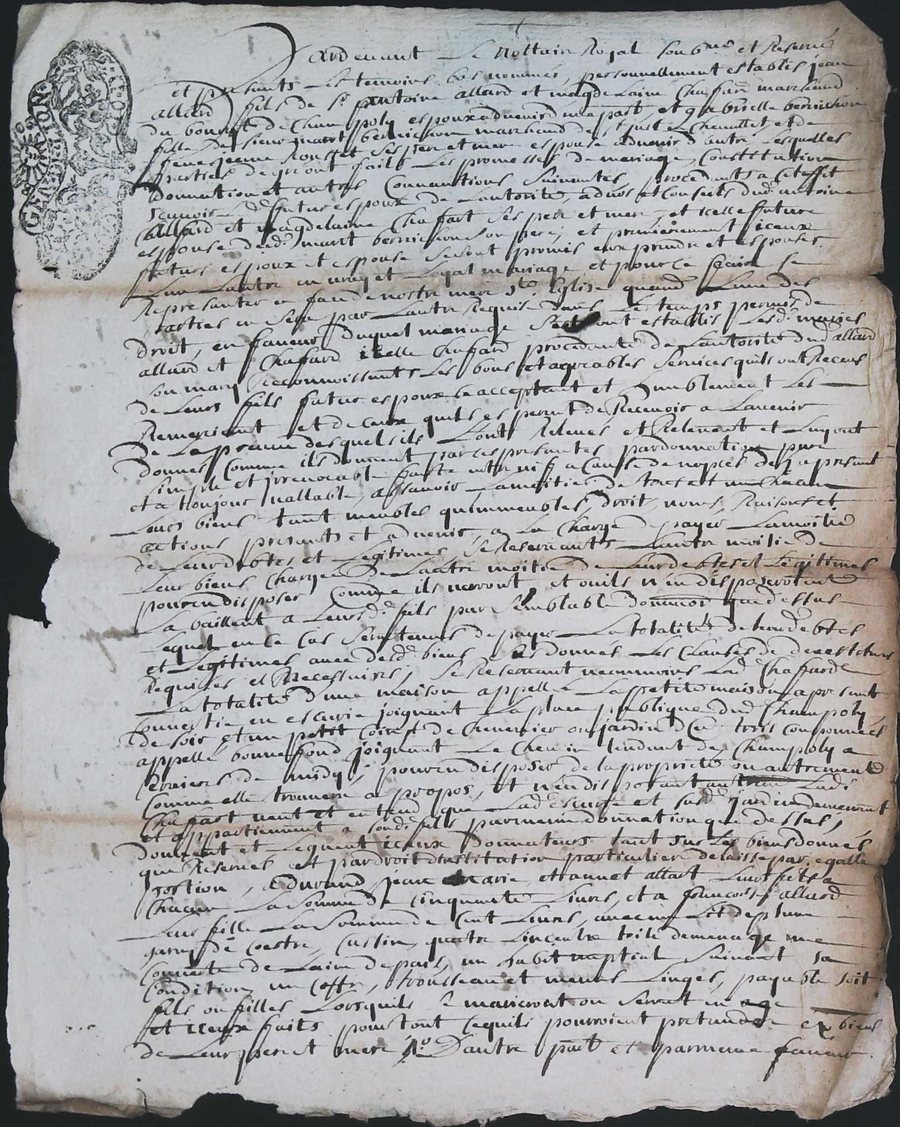 GEN DE LYON
Pardevant Le Nottaire Royal soubsne et Reservé
et presants Les temoins bas nommes, personnellement establis jean
allard fils de Sr Antoine allard et magdelaine Chaffard marchand
du bourg de Champoly espoux advenir d'une part, et
fille de Sieur marchand de St just en Chevallet, et de
ses pere et mere espouse advenir d'autre Lesquelles
parties de gré ont fait Les promesses de mariage, Constitution
Donnation et autres Conventions Suivantes, procedants a Cet effet
scavoir Ledt futur espoux de Lautorité, advis et Conseils dud antoine
allard et magdelaine Chaffart Ses pere et mere, et icelle future
espouse dud Sr son pere, et premierement iceux
futurs espoux et espouse Se sont promis eux prendre et espouser
Lun Lautre en vray et Legal mariage et pour Ce faire Se
Representer en face de nostre mere Ste Eglise quand Lune des
parties en Sera par Lautre Requis dans Le temps permis de
droit, en faveur duquel mariage Se sont establis Lesd maries
allard et Chaffard icelle Chaffard procedante de Lautorité dud allard
son mary Reconnoissants Les bons et agreables Services quils ont Receus
de Leurs fils futur espoux Ce acceptant et humblement Les
Remerciant et de Ceux quils esperent de Recevoir a Lavenir
De La preuve desquels ils Lont Relevés et Relevent et Luy ont
donnés Comme ils donnent par Ces presantes par donnation pure
Simple et irrevocable faite entre vifs a Cause de nopces des a present
et a toujour vallable, assavoir La moitie de tous et un chacun
Leurs biens tant meubles qu immeubles, droit, noms, Raisons et
actions presants et advenir, a La Charge de payer La moitie
de Leurs debtes et Legitimes, Se Reservants Lautre moitie de
Leur biens Chargée de Lautre moitie de Leur debtes et Legitimes
pour en disposer Comme ils verront, et ou ils n en disposeroient
La vaillent a Leurd fils par Semblable donnaon que dessus
Lequel en Ce Cas Sera tenus de payer La totalité desd debtes
et Legitimes avec Lesd biens donnes Les Clauses de devestitures
Requises et Necessaires, Se Reservant neanmoins Lad Chaffard
La totalité dune maison appellé La petite maison a presant
Convertie en escurie joignant La place publique dud Champoly
de soir, et un petit de Chenevier ou jardin
appellé bonnefond joignant Le Chemin tendant de Champoly a
de midy, pour en disposer de la proprieté ou autrement
Comme elle trouvera a propos, et n en disposant Ladt
Chaffart veut et entend que Lad escurie et Susd jardin demeurent
et appartiennent a Sond fils par mesme donnation que dessus,
donnent et Leguent iceux Donnateurs tant Sur Les biens donnés
que Reserves et par droit d institution particulier delaissé par egalle
portion, a durand, jean marie, et annet allart Leurs fils a
Chacun La Somme de Cinquante Livres, et a françoise allard
Leur fille La Somme de Cent Livres, avec un Lit de plume
garny de Coestre, Cussin, quatre Linceux toile de menage une
Couverte de Laine de pais, un habit nuptial Suivant Sa
Condition, un Coffre, trousseau et menus Linges, payable Soit
fils ou filles Lorsquils Se marieront ou Seront en age
et iceux faits pour tout Ce quils pourroient pretandre ez biens
de Leur pere et mere Do Dautre part et par mesme faveur